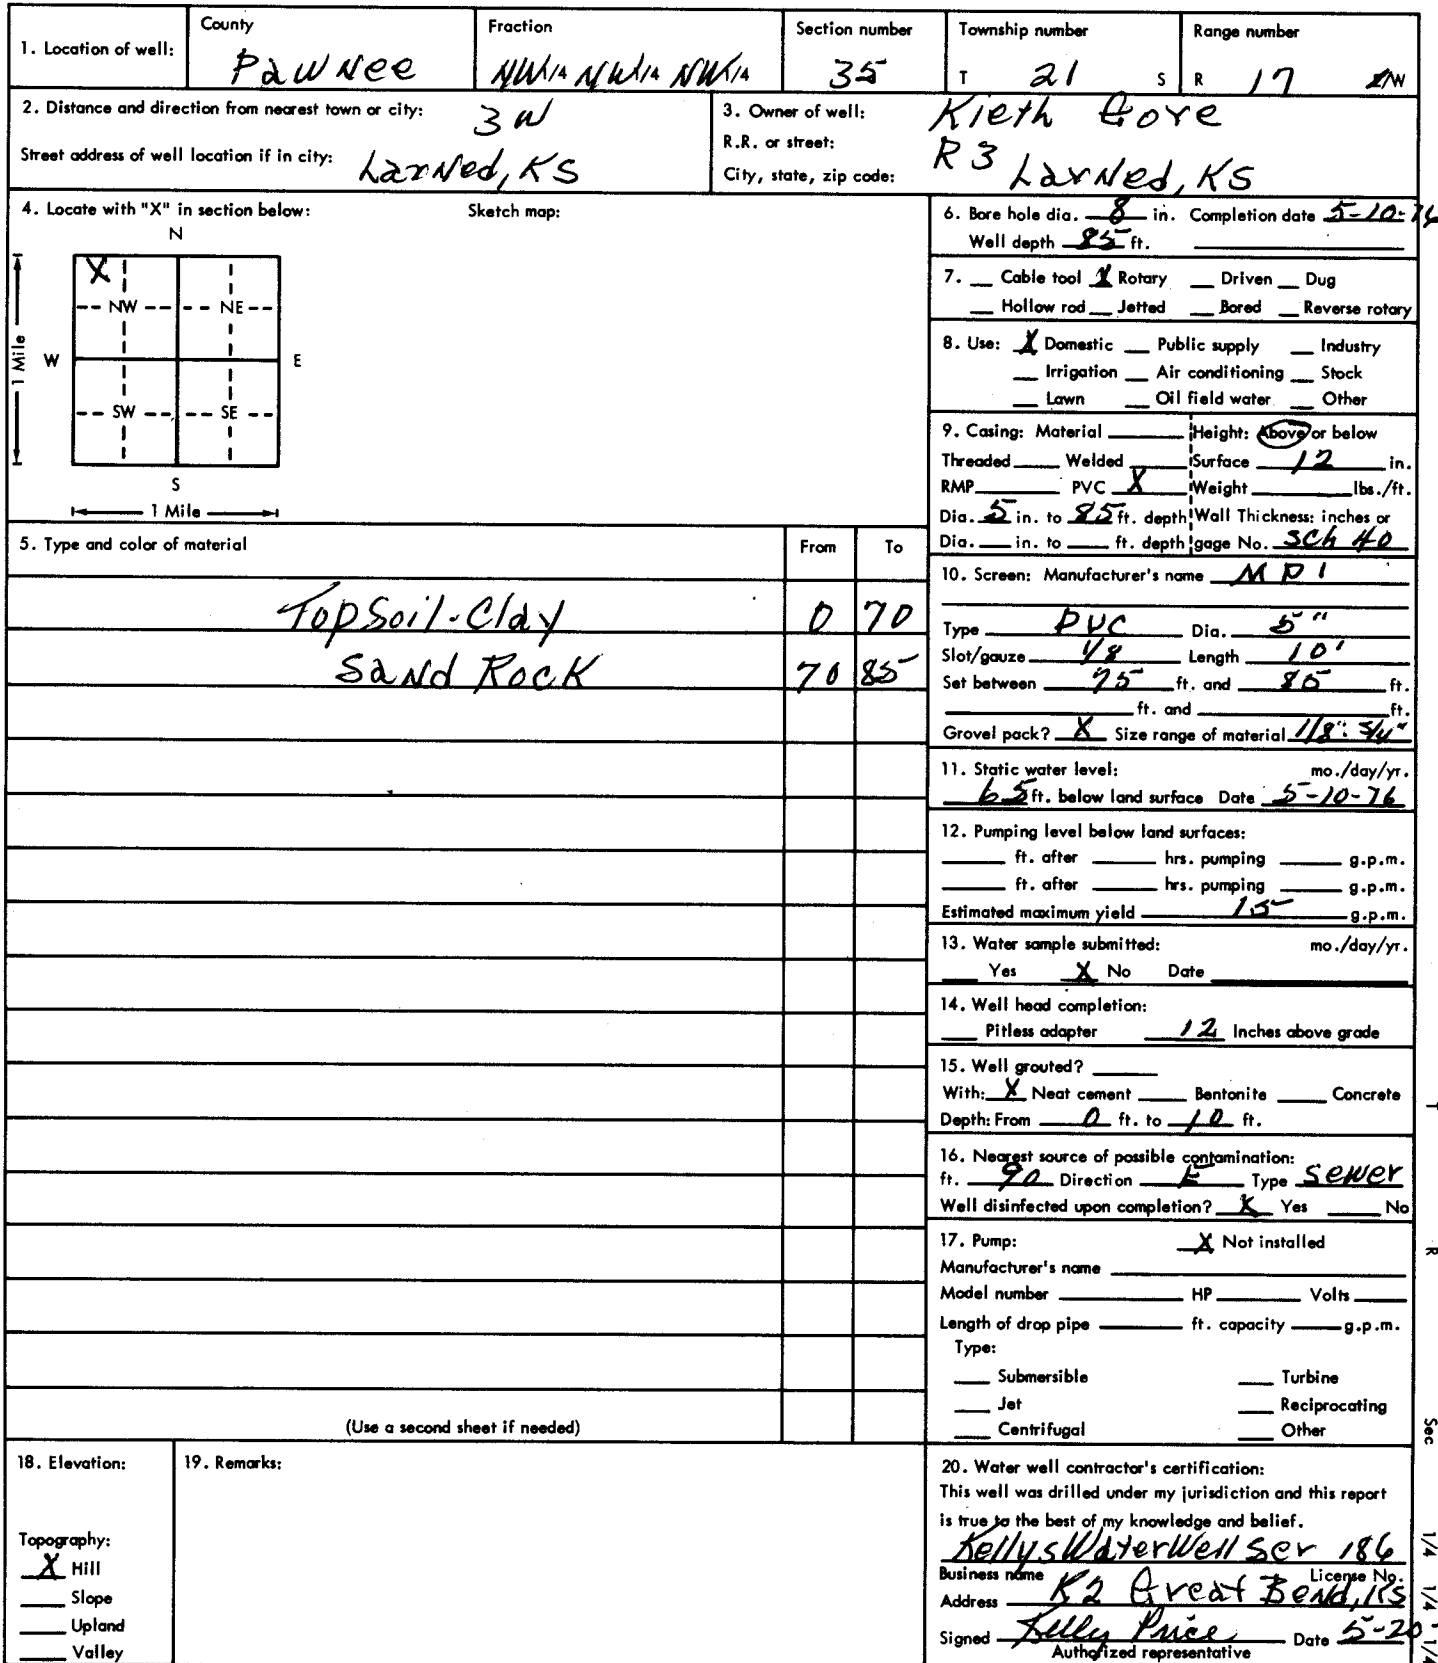 1. Location of well: County Pawnee Fraction NW1/4 NW1/4 NW1/4 Section number 35 Township number T 21 S Range number R 17 E/W
2. Distance and direction from nearest town or city: 3 W
Street address of well location if in city: Larned, KS
3. Owner of well: Kieth Gore
R.R. or street: R 3
City, state, zip code: Larned, KS
4. Locate with "X" in section below: Sketch map:
N
X
NW NE
W E
1 Mile
SW SE
S
1 Mile
5. Type and color of material From To
Topsoil-Clay 0 70
Sand Rock 70 85
(Use a second sheet if needed)
6. Bore hole dia. 8 in. Completion date 5-10-76
Well depth 85 ft.
7. __ Cable tool X Rotary __ Driven __ Dug
__ Hollow rod __ Jetted __ Bored __ Reverse rotary
8. Use: X Domestic __ Public supply __ Industry
__ Irrigation __ Air conditioning __ Stock
__ Lawn __ Oil field water __ Other
9. Casing: Material ____ Height: Above or below
Threaded ____ Welded ____ Surface 12 in.
RMP ____ PVC X Weight ____ lbs./ft.
Dia. 5 in. to 85 ft. depth Wall Thickness: inches or
Dia. ____ in. to ____ ft. depth gage No. Sch 40
10. Screen: Manufacturer's name MPI
Type PVC Dia. 5"
Slot/gauze 1/8 Length 10'
Set between 75 ft. and 85 ft.
____ ft. and ____ ft.
Gravel pack? X Size range of material 1/8": 3/4"
11. Static water level: mo./day/yr.
65 ft. below land surface Date 5-10-76
12. Pumping level below land surfaces:
____ ft. after ____ hrs. pumping ____ g.p.m.
____ ft. after ____ hrs. pumping ____ g.p.m.
Estimated maximum yield 15 g.p.m.
13. Water sample submitted: mo./day/yr.
__ Yes X No Date ____
14. Well head completion:
__ Pitless adapter 12 Inches above grade
15. Well grouted? ____
With: X Neat cement ____ Bentonite ____ Concrete
Depth: From 0 ft. to 10 ft.
16. Nearest source of possible contamination:
ft. 90 Direction E Type Sewer
Well disinfected upon completion? X Yes ____ No
17. Pump: X Not installed
Manufacturer's name ____
Model number ____ HP ____ Volts ____
Length of drop pipe ____ ft. capacity ____ g.p.m.
Type:
__ Submersible __ Turbine
__ Jet __ Reciprocating
__ Centrifugal __ Other
18. Elevation:
Topography:
X Hill
__ Slope
__ Upland
__ Valley
19. Remarks:
20. Water well contractor's certification:
This well was drilled under my jurisdiction and this report
is true to the best of my knowledge and belief.
Kellys Water Well Ser 186
Business name License No.
Address R2 Great Bend, KS
Signed Kelly Price Date 5-20
Authorized representative
T
R
Sec
1/4 1/4 1/4